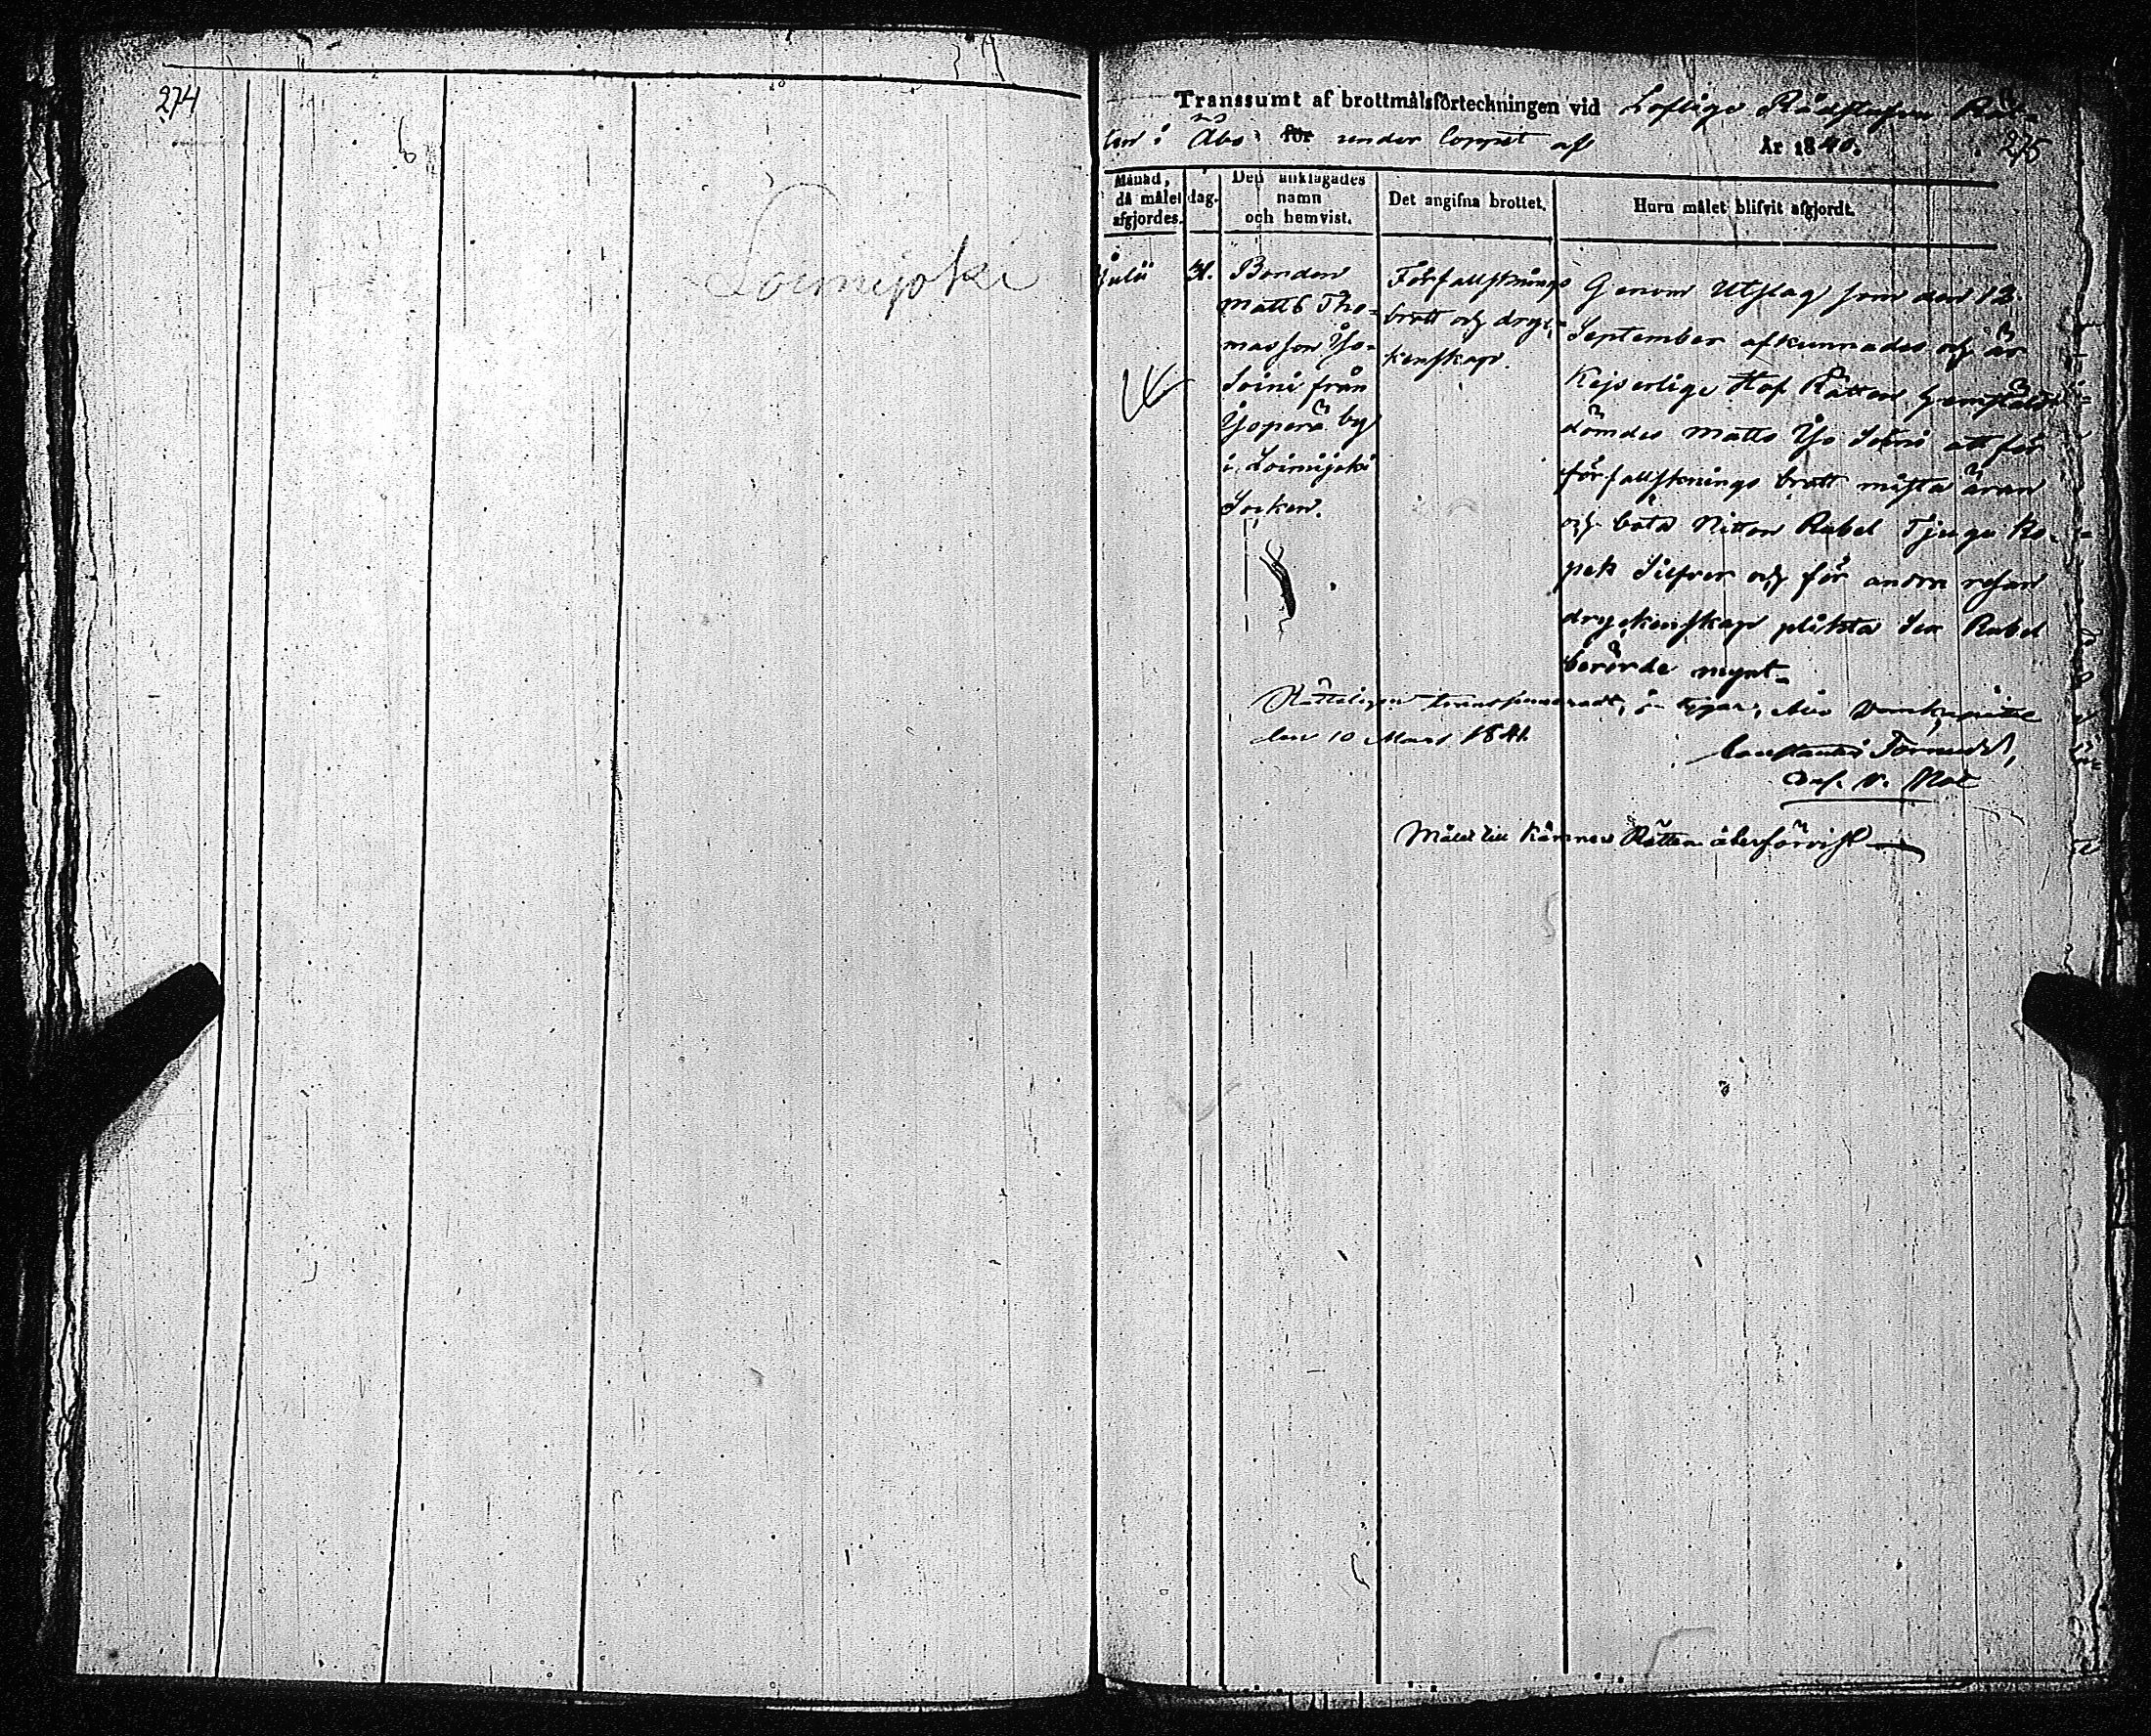 274
Loimijoki
Transsumt af brottmålsförteckningen vid Loflige Rådstufvu Rät-
ten i Åbo för under loppet af År 1840.
275
Månad, då målet afgjordes.
dag.
Den anklagades namn och hemvist.
Det angifna brottet.
Huru målet blifvit afgjordt.
Julii
31.
Bonden
Matts Tho-
masson Yso-
Soini från
Ysoperä by
i Loimijoki
Socken.
Förfallsknings
brott och dryc-
kenskap.
Genom Utslag som den 12
September afkunnades och är
Kejserlige Hof Rätten
dömdes Matts Yso Soini att för
förfallsknings brott mista äran
och böta Nitton Rubel Tjugu Ko-
pek Silfver och för andra resan
dryckenskap plikta Sex Rubel
berörde mynt.
Rätteligen transsumeradt,
den 10 Mars 1841.
Målet till Kämners Rätten återförvist